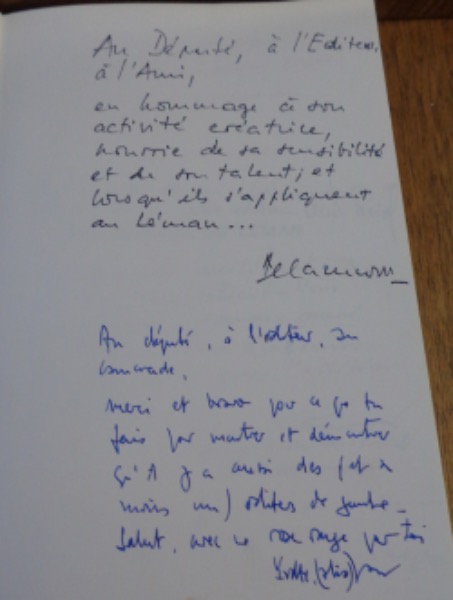 Au Député, à l'Editeur,
à l'Ami,
en hommage à son
activité créatrice,
nourrie de sa sensibilité
et de son talent; et
lorsqu'ils s'appliquent
au Léman...
Au député, à l'éditeur, au
camarade,
merci et bravo pour ce que tu
fais pour montrer et démontrer
qu'il y a aussi des (et au
moins un) éditeurs de gauche.
Salut, avec ce rouge par